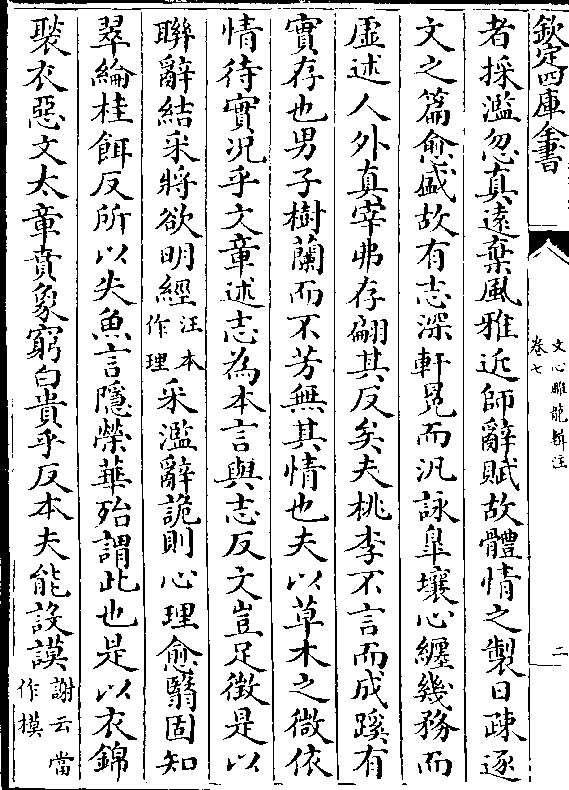 欽定四庫全書
文心雕龍輯注
卷七
二
者採濫忽真遠棄風雅近師辭賦故體情之製日疎逐
文之篇愈盛故有志深軒冕而汎詠臯壤心纏幾務而
虛述人外真宰弗存翩其反矣夫桃李不言而成蹊有
實存也男子樹蘭而不芳無其情也夫以草木之微依
情待實況乎文章述志為本言與志反文豈足徵是以
聯辭結采將欲明經汪本作理采濫辭詭則心理愈翳固知
翠綸桂餌反所以失魚言隱榮華殆謂此也是以衣錦
褧衣惡文太章賁象窮白貴乎反本夫能設謨謝云當作模